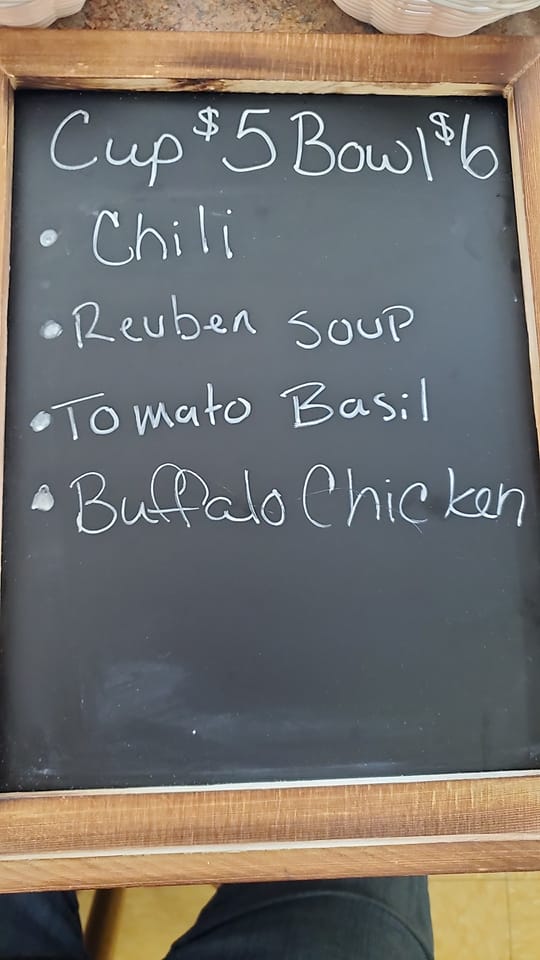 Cup $5 Bowl $6
• Chili
• Reuben Soup
• Tomato Basil
• Buffalo Chicken